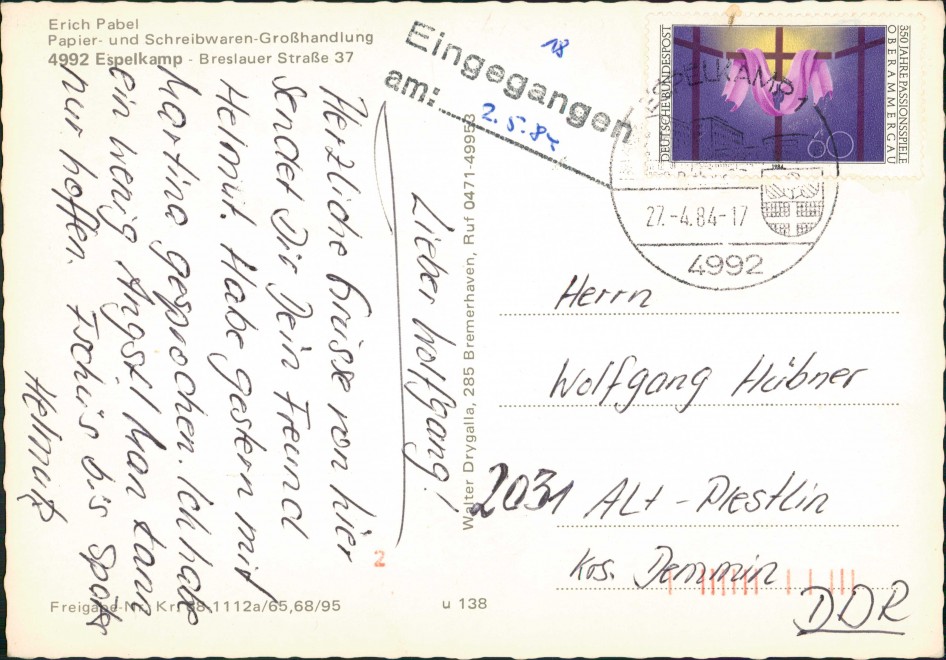 Erich Pabel
Papier- und Schreibwaren-Großhandlung
4992 Espelkamp - Breslauer Straße 37
Eingegangen
am:
18
2.5.84
DEUTSCHE BUNDESPOST
350 JAHRE PASSIONSSPIELE
OBERAMMERGAU
60
ESPELKAMP 1
27.-4.84-17
4992
Lieber Wolfgang!
Herzliche Grüsse von hier
sendet Dir Dein Freund
Helmut. Habe gestern mit
Martina gesprochen. Ich habe
ein wenig Angst. Man kann
nur hoffen. Tschüs bis später
Helmut
Walter Drygalla, 285 Bremerhaven, Ruf 0471-49953
Herrn
Wolfgang Hübner
2031 Alt-Plestlin
Krs. Demmin
DDR
2
Freigabe-Nr. Kr. 68.1112a/65,68/95
u 138